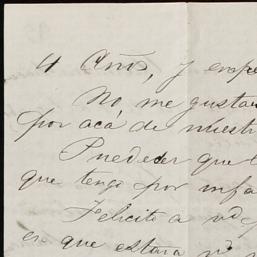 4 Años, y empe
No me gusta
por acá de nuestr
Puede ser que
que tengo por infa
Felicito a vd
en que estara vd